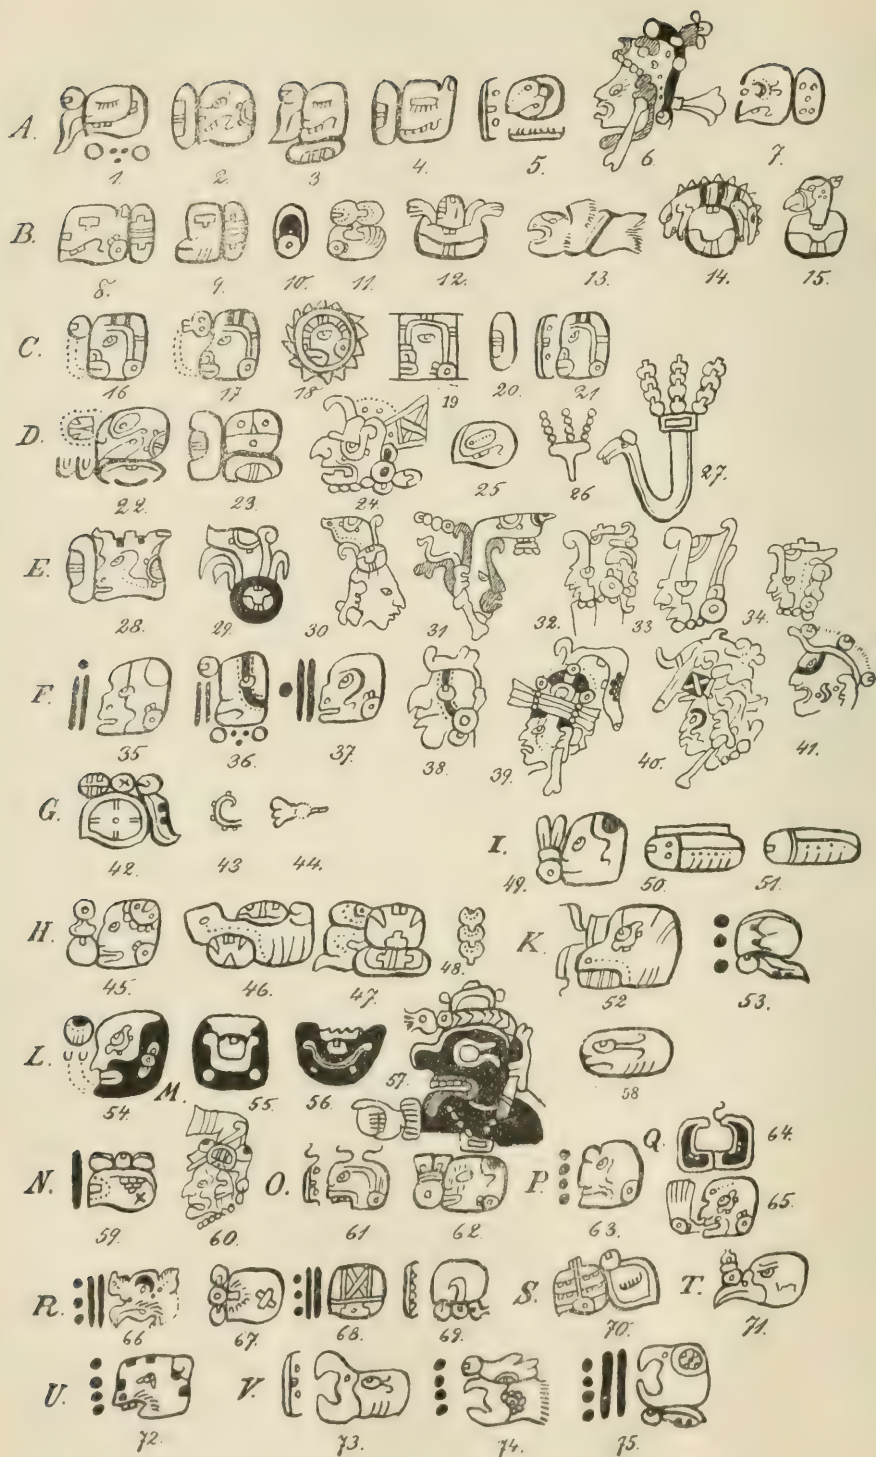 A. 1. 2. 3 4. 5. 6. 7.
B. 8. 9. 10. 11. 12. 13. 14. 15.
C. 16 17 18 19 20 21
D. 22. 23. 24. 25 26 27.
E. 28. 29. 30 31 32. 33 34.
F. 35 36. 37. 38. 39. 40. 41.
G. 42. 43 44.
I. 49. 50. 51.
H. 45. 46. 47. 48.
K. 52 53.
L. 54. M. 55. 56. 57. 58
N. 59. 60. O. 61 62. P. 63. Q. 64. 65.
R. 66 67. 68. 69. S. 70. T. 71.
U. 72. V. 73. 74. 75.